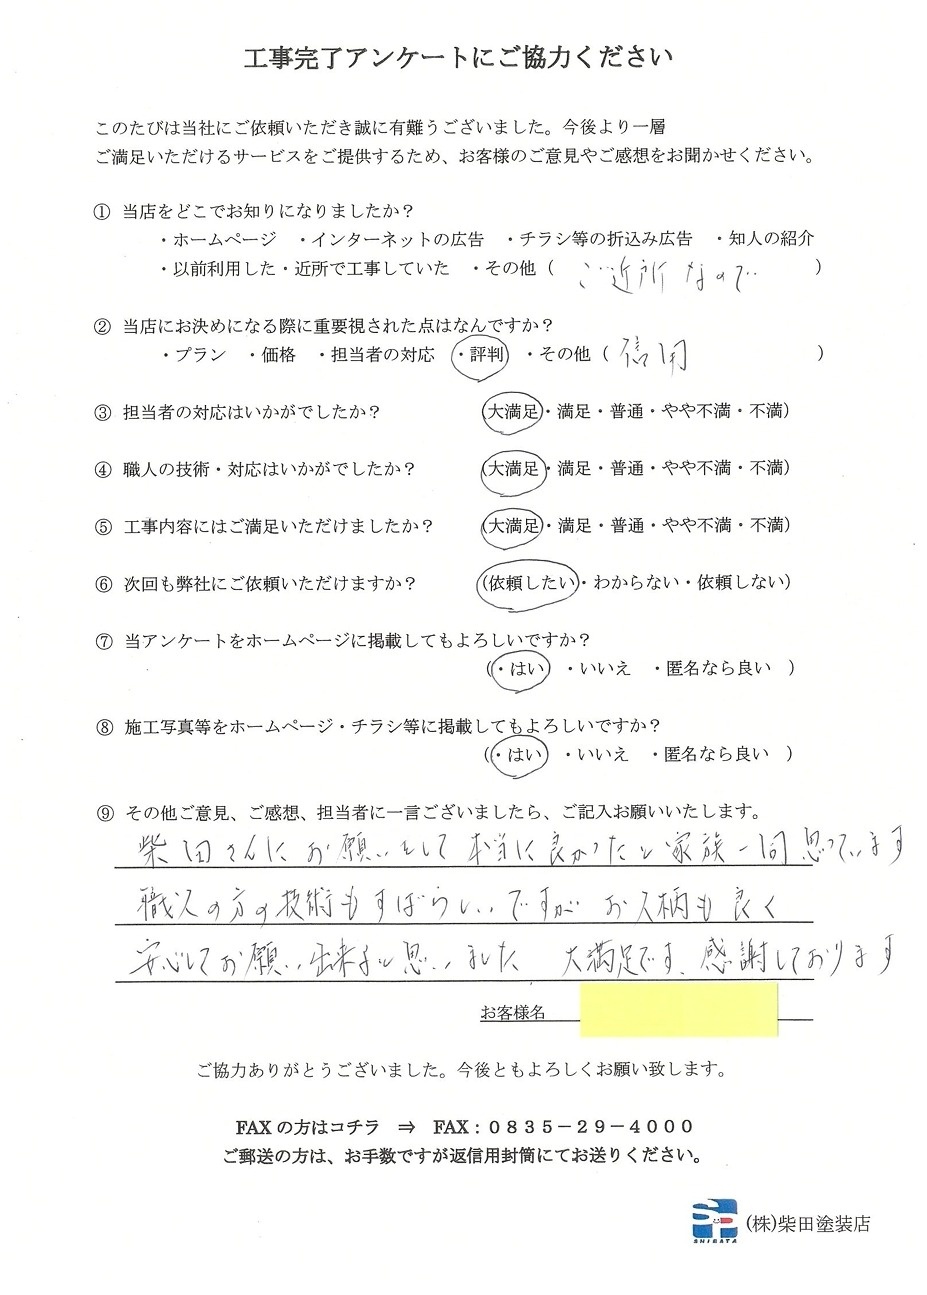 工事完了アンケートにご協力ください
このたびは当社にご依頼いただき誠に有難うございました。今後より一層
ご満足いただけるサービスをご提供するため、お客様のご意見やご感想をお聞かせください。
① 当店をどこでお知りになりましたか？
・ホームページ ・インターネットの広告 ・チラシ等の折込み広告 ・知人の紹介
・以前利用した・近所で工事していた ・その他（ ご近所なので ）
② 当店にお決めになる際に重要視された点はなんですか？
・プラン ・価格 ・担当者の対応 ・評判 ・その他（ 信用 ）
③ 担当者の対応はいかがでしたか？ （大満足・満足・普通・やや不満・不満）
④ 職人の技術・対応はいかがでしたか？ （大満足・満足・普通・やや不満・不満）
⑤ 工事内容にはご満足いただけましたか？ （大満足・満足・普通・やや不満・不満）
⑥ 次回も弊社にご依頼いただけますか？ （依頼したい・わからない・依頼しない）
⑦ 当アンケートをホームページに掲載してもよろしいですか？
（・はい ・いいえ ・匿名なら良い ）
⑧ 施工写真等をホームページ・チラシ等に掲載してもよろしいですか？
（・はい ・いいえ ・匿名なら良い ）
⑨ その他ご意見、ご感想、担当者に一言ございましたら、ご記入お願いいたします。
柴田さんにお願いをして本当に良かったと家族一同思っています
職人の方の技術もすばらしいですがお人柄も良く
安心してお願い出来ると思いました 大満足です、感謝しております
お客様名
ご協力ありがとうございました。今後ともよろしくお願い致します。
FAX の方はコチラ ⇒ FAX：０８３５－２９－４０００
ご郵送の方は、お手数ですが返信用封筒にてお送りください。
SP SHIBATA (株)柴田塗装店